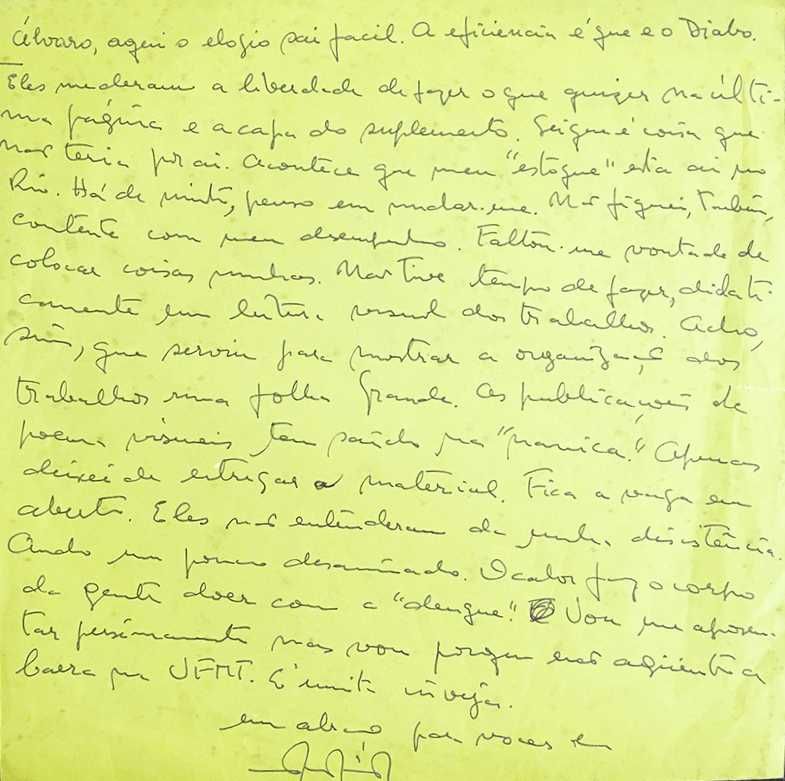 Álvaro, aqui o elogio sai facil. A eficiencia é que e o Diabo.
Eles me deram a liberdade de fazer o que quizer na últi-
ma página e a capa do suplemento. Sei que é coisa que
não teria por ai. Acontece que meu "estoque" esta ai no
Rio. Há de vinte, penso em mudar-me. Não fiquei, também,
contente com meu desempenho. Faltou-me vontade de
colocar coisas minhas. Não tive tempo de fazer, didati-
camente em leitura visual dos trabalhos. Acho,
sim, que serviu para mostrar a organização dos
trabalhos numa folha Grande. As publicações de
poemas visuais tem saido na "nanica". Apenas
deixei de entregar o material. Fica a vaga em
aberto. Eles não entenderam da minha desistência.
Ando um pouco desanimado. O calor faz o corpo
da gente doer com a "dengue". Vou me aposen-
tar mas vou porque não aguento a
barra na UFMT. E' muita inveja.
um abraço para voces